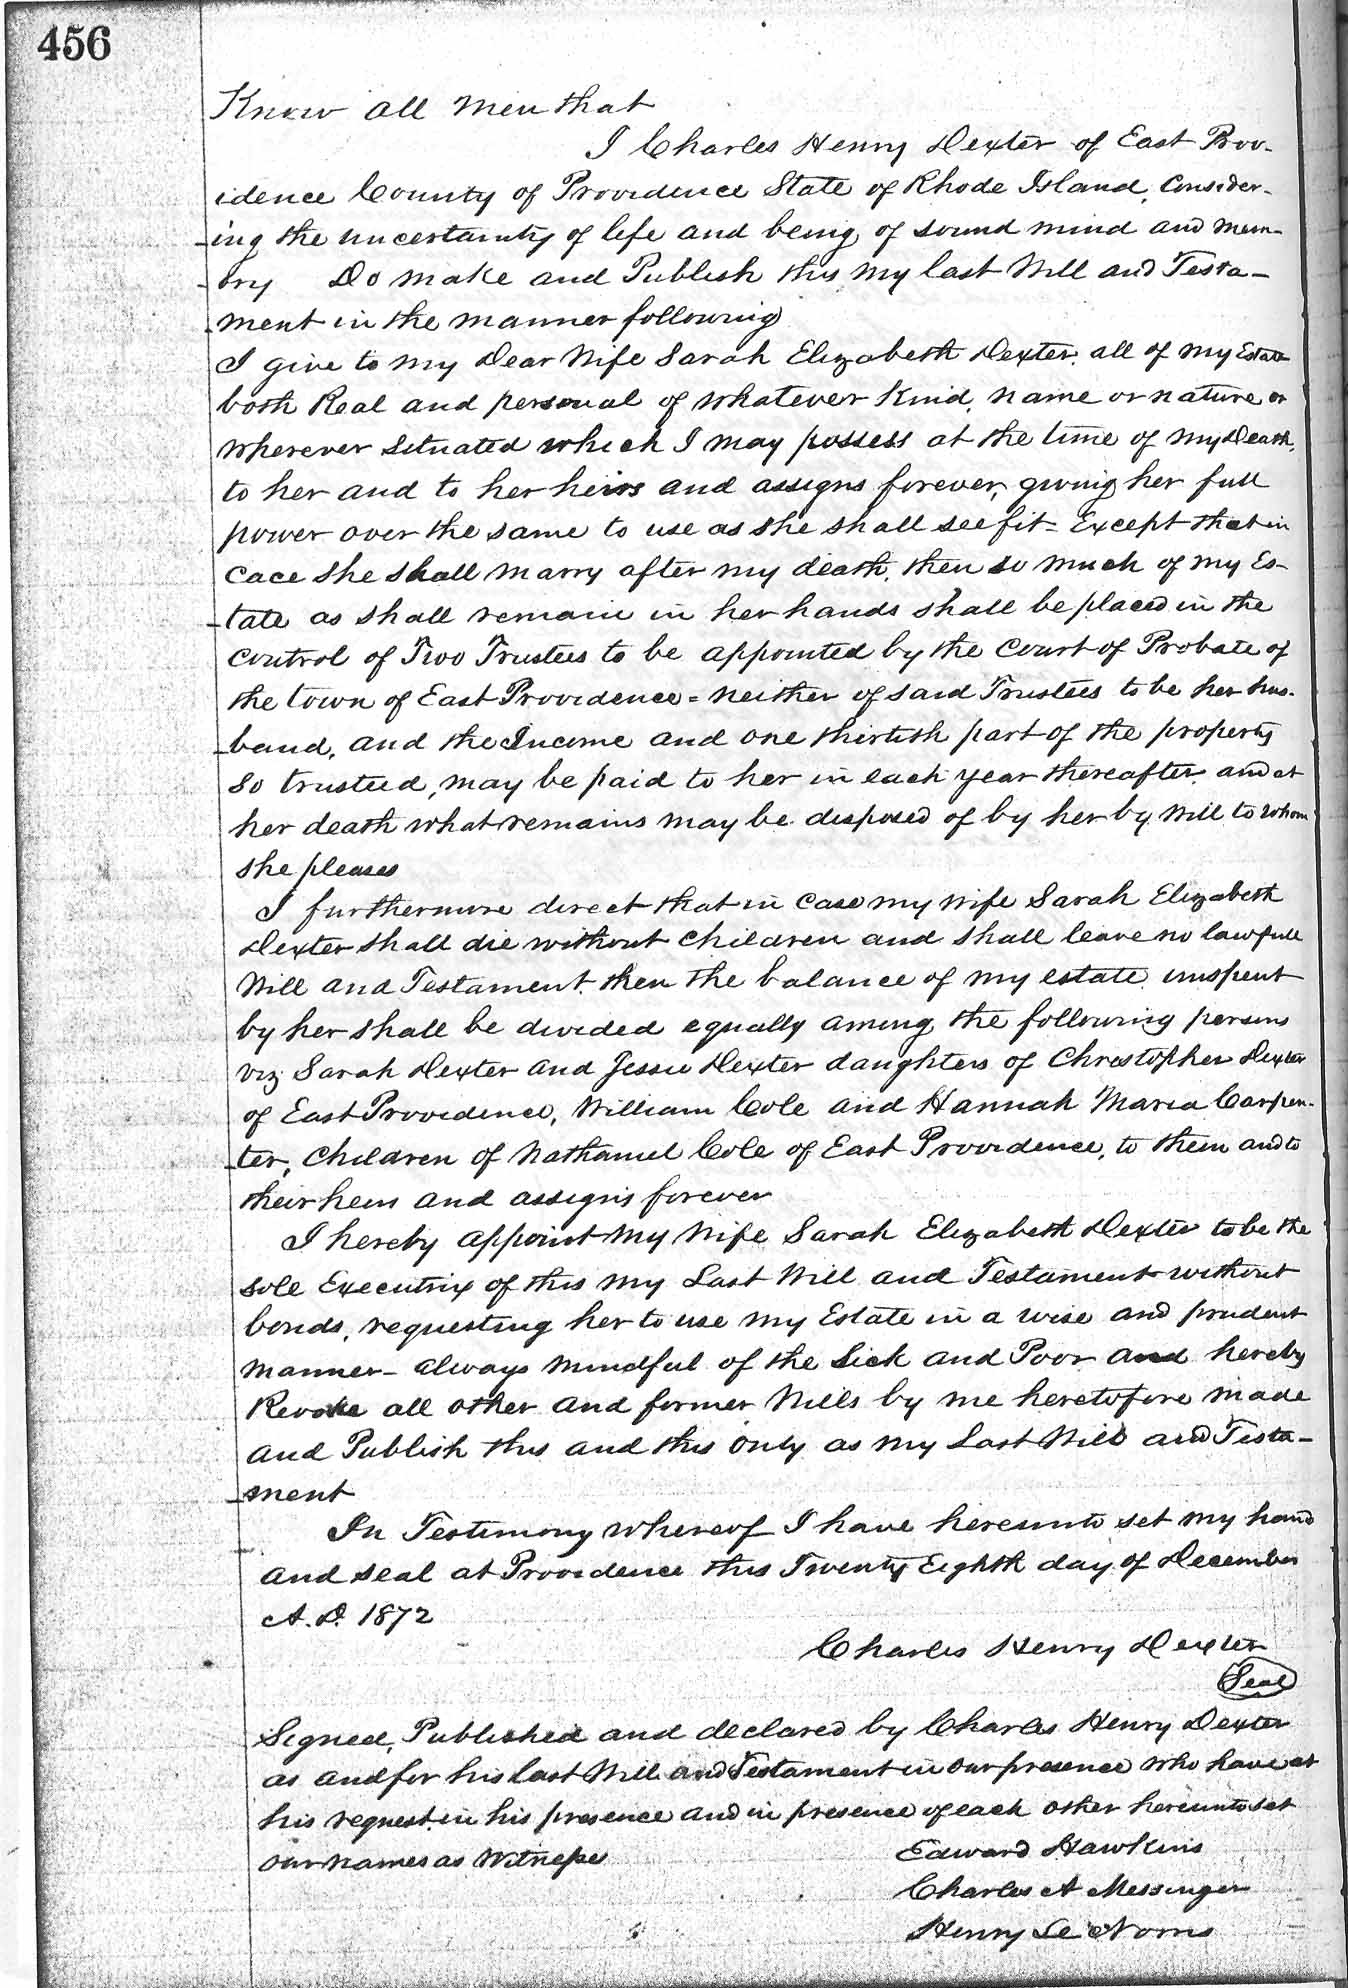 456
Know all men that
I Charles Henry Dexter of East Prov-
idence County of Providence State of Rhode Island, consider-
ing the uncertainty of life and being of sound mind and mem-
ory Do make and Publish this my last Will and Testa-
ment in the manner following
I give to my Dear Wife Sarah Elizabeth Dexter, all of my Estate
both Real and personal of whatever Kind, name or nature or
wherever situated which I may possess at the time of my Death,
to her and to her heirs and assigns forever, giving her full
power over the same to use as she shall see fit = Except that in
cace she shall marry after my death, then so much of my Es-
tate as shall remain in her hands shall be placed in the
control of Two Trustees to be appointed by the Court of Probate of
the town of East Providence = neither of said Trustees to be her hus-
band, and the Income and one thirtith part of the property
so trusteed, may be paid to her in each year thereafter, and at
her death what remains may be disposed of by her by Will to whom
she pleases
I furthermore direct that in case my wife Sarah Elizabeth
Dexter shall die without children and shall leave no lawfull
Will and Testament, then the balance of my estate unspent
by her shall be divided equally among the following persons
viz Sarah Dexter and Jessie Dexter daughters of Christopher Dexter
of East Providence, William Cole and Hannah Maria Carpen-
ter, children of Nathaniel Cole of East Providence, to them and to
their heirs and assigns forever
I hereby appoint my Wife Sarah Elizabeth Dexter to be the
sole Executrix of this my Last Will and Testament without
bonds, requesting her to use my Estate in a wise and prudent
manner - always mindful of the Sick and Poor and hereby
Revoke all other and former Wills by me heretofore made
and Publish this and this only as my Last Will and Testa-
ment
In Testimony whereof I have hereunto set my hand
and seal at Providence this Twenty Eighth day of December
A.D. 1872
Charles Henry Dexter
Seal
Signed, Published and declared by Charles Henry Dexter
as and for his last Will and Testament in our presence who have at
his request in his presence and in presence of each other hereunto set
our names as Witnesses
Edward Hawkins
Charles A Messinger
Henry Le Norris